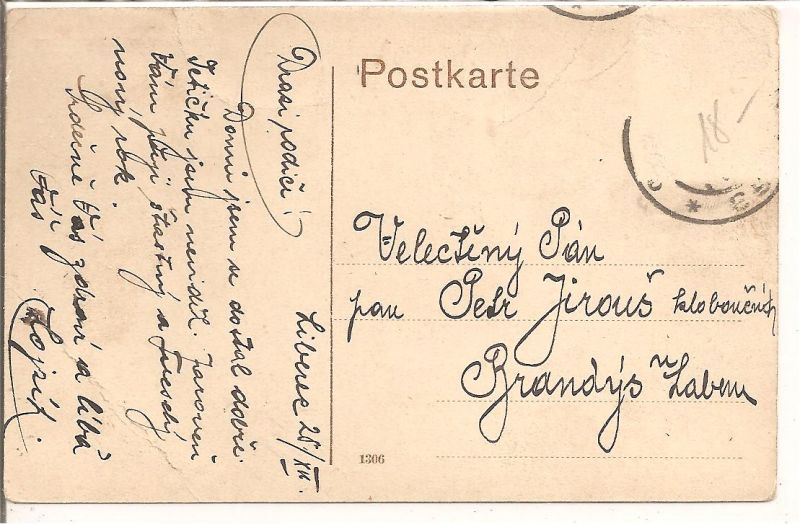 Postkarte
18-
Velectěný Pán
pan Petr Jirouš kloboučník
Brandýs n Labem
1306
Liberec 28/XII
Drazí rodiče!
Domů jsem se dostal dobře.
Tetičku jsem neviděl. Zároveň
Vám přeji šťastný a veselý
nový rok.
Srdečně Vás zdraví a líbá
Váš Lojzík.